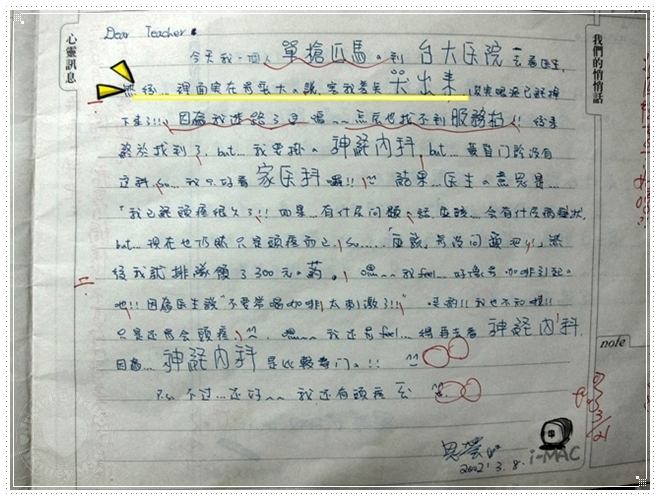 心靈訊息
我們的悄悄話
Dear Teacher:
今天我一個人單槍匹馬。到台大医院去看医生,
然後…裡面實在是很大。說,害我差点哭出來
下來了!!,因為我迷路了耶 嗚~~怎麼也找不到服務柏!!後來
終於找到了,but…我要掛。神經內科,but…黃昏门診沒有
這科,so…我只好看家医科囉!!^^ 結果…医生。意思是…
「我已經頭痛很久了!!如果…有什広问題。話,應該…会有什広病症狀,
but…現在也仍然只是頭痛而已,so……「應該」是沒问題吧!!,然
後我就排隊領了300元。葯。,嗯~~我feel…好像是咖啡引起。
也!!因為医生說"不要常喝咖啡,太刺激了!!"
只是还是会頭痛,^^ 嗯~~我还是feel…得再去看神經內科,
因為…神經內科是比較專门。!! ^^
不过…还好~~我还有頭痛
2002. 3. 8.
note
i-MAC
3/21
一
二